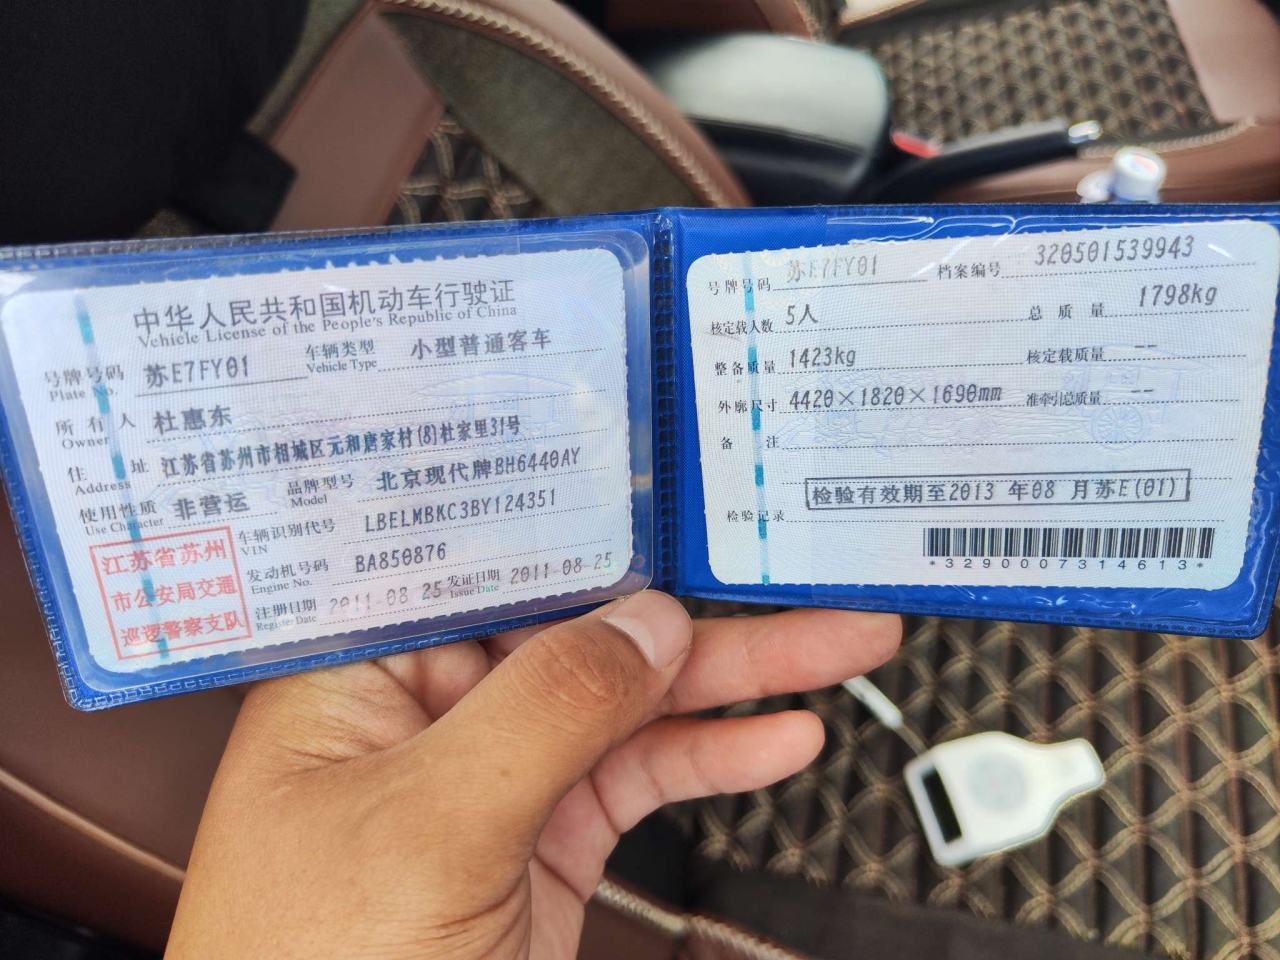 中华人民共和国机动车行驶证
Vehicle License of the People's Republic of China
号牌号码 苏E7FY01 车辆类型 小型普通客车
Plate No. Vehicle Type
所有人 杜惠东
Owner
住址 江苏省苏州市相城区元和唐家村(8)杜家里31号
Address
使用性质 非营运 品牌型号 北京现代牌BH6440AY
Use Character Model
车辆识别代号 LBELMBKC3BY124351
VIN
发动机号码 BA850876
Engine No.
注册日期 2011-08-25 发证日期 2011-08-25
Register Date Issue Date
江苏省苏州
市公安局交通
巡逻警察支队
号牌号码 苏E7FY01 档案编号 320501539943
核定载人数 5人 总质量 1798kg
整备质量 1423kg 核定载质量 --
外廓尺寸 4420×1820×1690mm 准牵引总质量 --
备注
检验有效期至2013 年08 月苏E(01)
检验记录
*3290007314613*